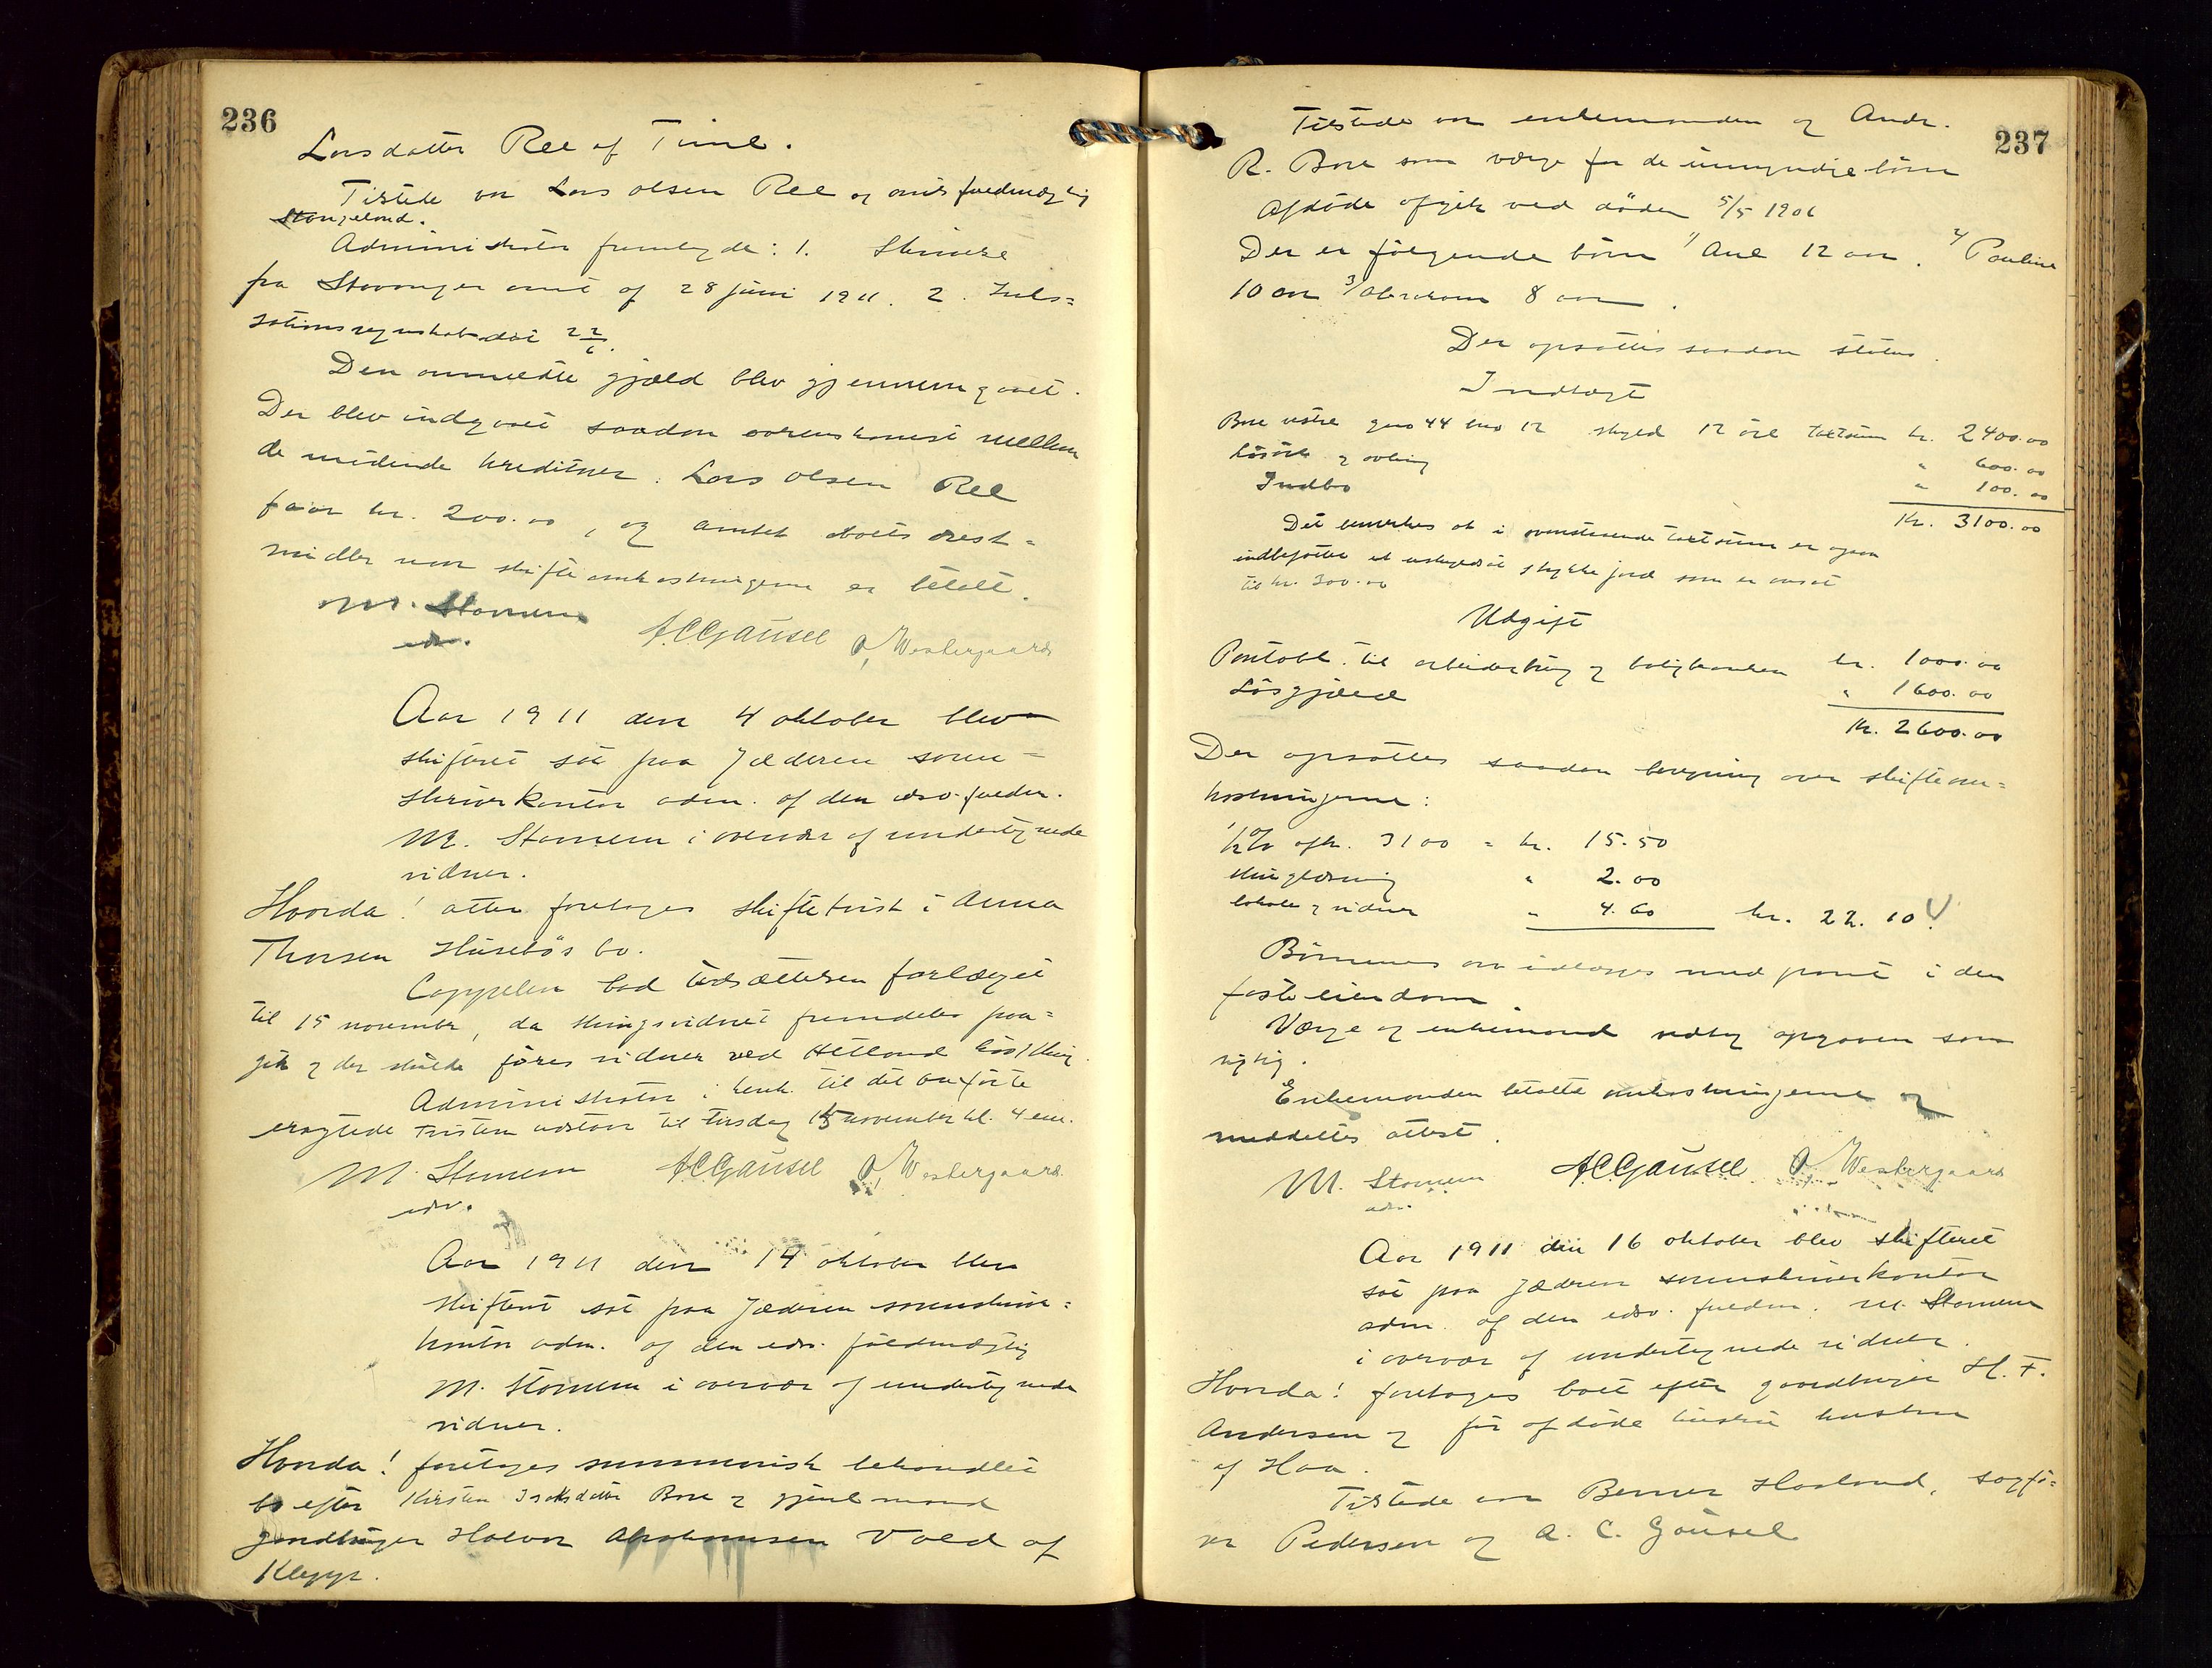 236
Larsdatter Ree af Time.
Tilstede var Lars Olsen Ree og amtsfuldmægtig
Stangeland.
Administrator fremlagde: 1. Skrivelse
fra Stavanger amt af 28 juni 1911. 2.
dat 22/6.
Den anmeldte gjæld blev gjennemgaaet.
Der blev indgaaet saadan overenskomst mellem
de mødende kreditorer. Lars Olsen Ree
faar kr. 200.00, og amtet boets rest-
midler naar skifteomkostningerne er betalt.
M. Stornem
edsv.
A.C. Gausel O. Westergaard
Aar 1911 den 4 oktober blev
skifteret sat paa Jæderen soren-
skriverkontor adm. af den edsv. fuldm.
M. Stornem i overvær af undertegnede
vidner.
Hvorda! atter foretages skiftetvist i Anna
Thorsen Husebøs bo.
Cappelen bad udsættelsen forlænget
til 15 november, da thingsvidnet fremdeles paa-
gik og der skulde føres vidner ved Hetland
Administrator i henh. til det anførte
eragtede Tvisten udstaar til tirsdag 15 november kl. 4 em.
M. Stornem A.C. Gausel O. Westergaard
edsv.
Aar 1911 den 14 oktober blev
skifteret sat paa Jæderen sorenskriver-
kontor adm. af den edsv. fuldmægtig
M. Stornem i overvær af undertegnede
vidner.
Hvorda! foretages summarisk behandlet
bo efter Kirsten Isaksdatter Bore og gjenl. mand
gaardbruger Halvor Abrahamsen Vold af
Klepp.
237
Tilstede var enkemanden og Andr.
R. Bore som værge for de umyndige børn
Afdøde afgik ved døden 5/5 1906
Der er følgende børn 1/ Ane 12 aar. 2/ Pauline
10 aar 3/ Abraham 8 aar.
Der opsattes saadan status.
Indtægt
Bore østre gno 44 bno 12 skyld 12 øre taxtsum kr. 2400.00
Løsøre og avling " 600.00
Indbo " 100.00
Kr. 3100.00
Det bemerkes at i ovenstaaende taxtsum er ogsaa
indbefattet et uskyldsat stykke jord som er ansat
til kr. 300.00
Udgift
Pantobl. til arbeiderbrug og boligbanken kr. 1000.00
Løsgjæld " 1600.00
Kr. 2600.00
Der opsattes saadan beregning over skifteom-
kostningerne:
1/2% af kr. 3100 = kr. 15.50
thinglæsning " 2.00
lokale og vidner " 4.60 kr. 22.10
Børnenes arv udlægges med pant i den
faste eiendom.
Værge og enkemand vedtog opgaven som
rigtig.
Enkemanden betalte omkostningerne og
meddeltes attest.
M. Stornem A.C. Gausel O. Westergaard
edsv.
Aar 1911 den 16 oktober blev skifteret
sat paa Jæderen sorenskriverkontor
adm. af den edsv. fuldm. M. Stornem
i overvær af undertegnede vidner.
Hvorda! foretages boet efter gaardbruger H. F.
Andersen og før afdøde hustru
af Haa.
Tilstede var Berner Haaland, sagfø-
rer Pedersen og A. C. Gausel